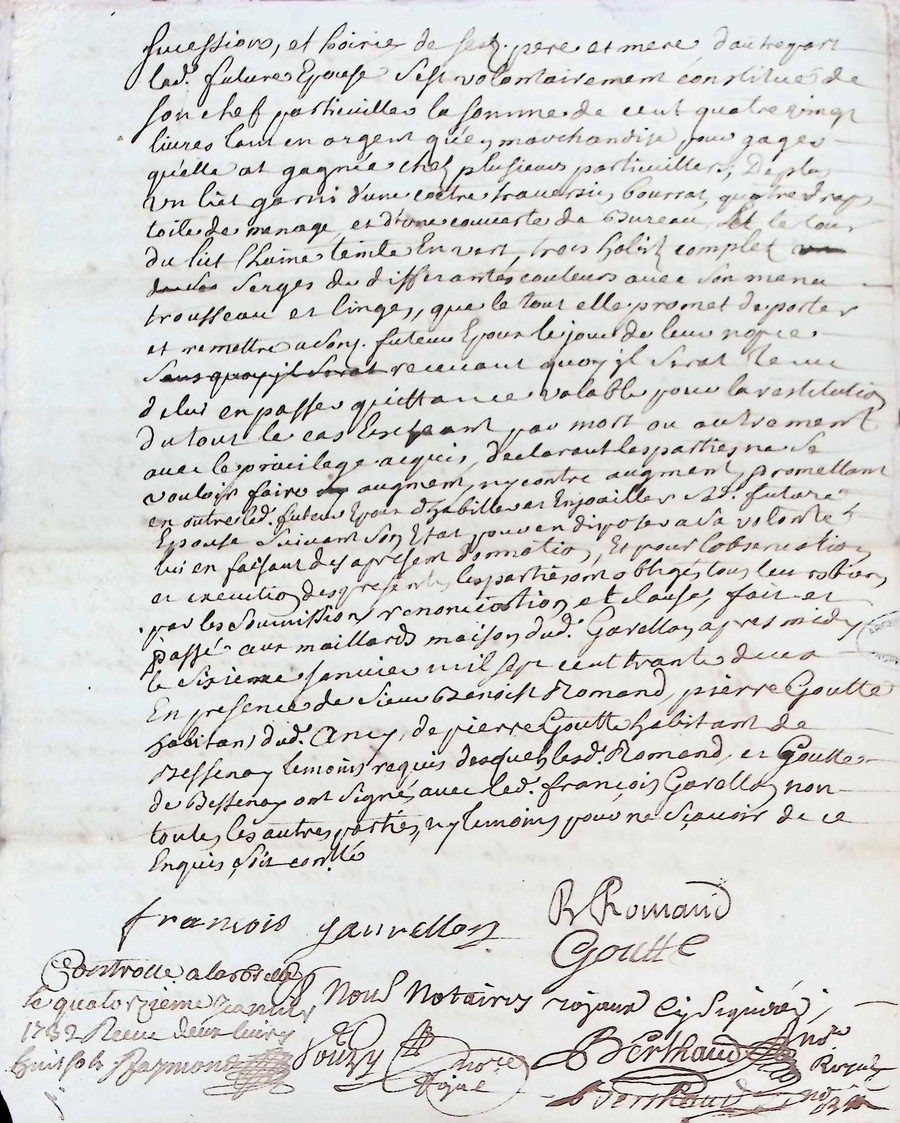 sucessions, et hoirie de sesd. pere et mere d'autre part
lad. future Epouse s'est volontairement constitué de
son chef particuillier la somme de cent quatre vingt
livres tant en argent qu'en marchandise pour gages
qu'elle at gagnée chez plusieurs particuilliers, De plus
un lict garni d'une coetre traversin, bourrat, quatre draps
toile de menage, et d'une couverte de Bureau Et le tour
du lict Chaine teinte En vert, trois habits complet
Serges de differantes couleurs avec son menu
trousseau et linges, que le tout elle promet de porter
et remettre a son futeur Epoux le jour de leur nopce
sans quoy il serat recevant quoy il serat tenu
de lui en passer quittance valable pour la restitution
du tout le cas Encheant par mort ou autrement
avec le privilege acquis, declarant les parties ne se
vouloir faire augment, ny contre augment, promettant
en outre led. futeur Epoux d'habiller et Enjoailler sad. future
Epouse suivant son Etat, pour en disposer a sa volonté
lui en faisant des apresent donnation, Et pour l'observation
et execution des presentes les parties ont obligés tous leurs biens
par les soumissions renonciation, et clauses, fait et
passé aux maillards maison dud. Garellon apres midy
le sixieme janvier mil sept cent trante deux
En presence de sieur Benoist Romand, pierre Goutte
habitans dud. Ancy, de pierre Goutte habitant de
Bessenay temoins requis desquels lesd. Romand, et Goutte
de Bessenay ont signé avec led. françois Garellon non
toutes les autres parties, ny temoins pour ne sçavoir de ce
Enquis soit conllé
françois garrellon B Romand
Goutte
Controllé a
le quatorzième Janvier
1732 Receu deux livres
huit sols Raymond
Nous Notaires royaux Cy Signées,
Souzy nore Royal
Berthaud nore Royal
Berthaud